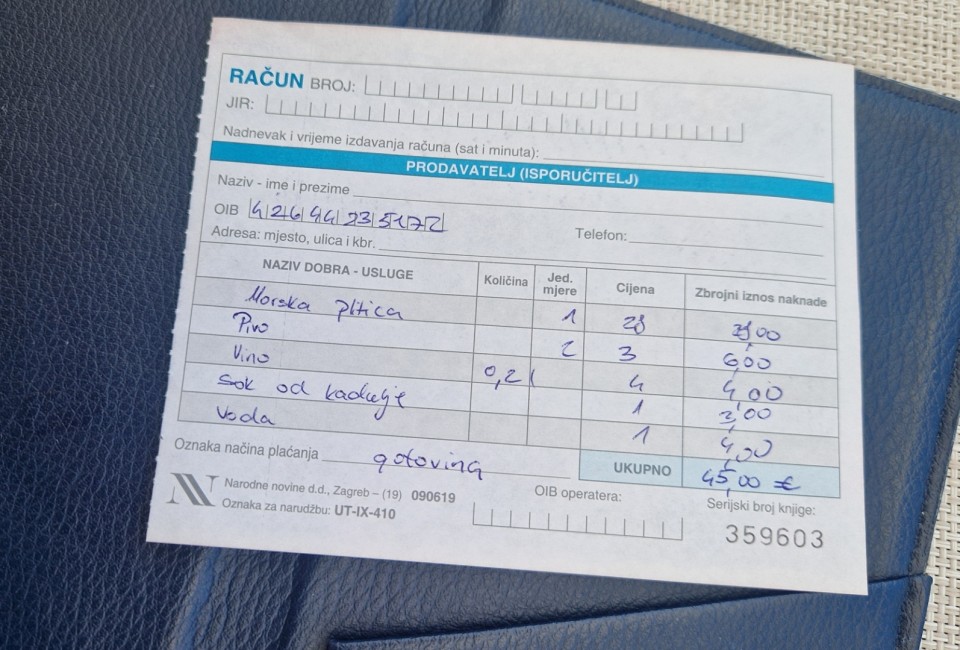 RAČUN BROJ:
JIR:
Nadnevak i vrijeme izdavanja računa (sat i minuta):
PRODAVATELJ (ISPORUČITELJ)
Naziv - ime i prezime
OIB 42644235172 Telefon:
Adresa: mjesto, ulica i kbr.
NAZIV DOBRA - USLUGE Količina Jed. mjere Cijena Zbrojni iznos naknade
Morska plitica 1 28
Pivo 2 3 6,00
Vino 0,2l 4 4,00
Sok od kadulje 1 3,00
Voda 1 4,00
Oznaka načina plaćanja gotovina UKUPNO 45,00 €
Narodne novine d.d., Zagreb – (19) 090619 OIB operatera: Serijski broj knjige:
Oznaka za narudžbu: UT-IX-410 359603